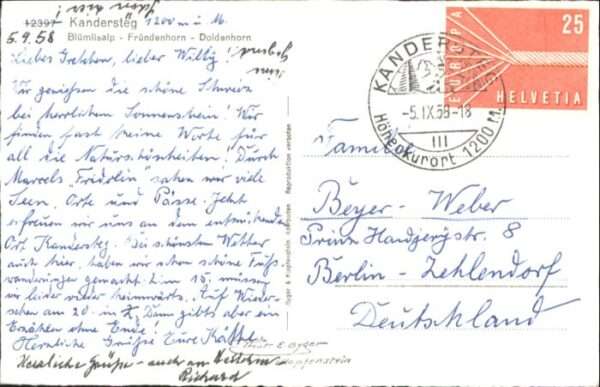 12397 Kandersteg 1200 m ü. M.
Blümlisalp - Fründenhorn - Doldenhorn
5.9.58
Liebes Gretchen, lieber Willy!
Wir geniessen die schöne Schweiz
bei herrlichem Sonnenschein! Wir
finden fast keine Worte für
all die Naturschönheiten! Durch
Marcels "Fridolin" sahen wir viele
Seen, Orte und Pässe. Jetzt
erfreuen wir uns an dem entzückenden
Ort Kandersteg. Bei schönstem Wetter
auch hier, haben wir schon schöne Fuß-
wanderungen gemacht. Am 15. müssen
wir leider wieder heimwärts. Auf Wieder-
sehen am 20. in Z. Dann gibts aber ein
Erzählen ohne Ende!
Herzliche Grüße Eure Käthe
Herzliche Grüße - auch an
Richard
Reproduktion verboten
KANDERSTEG
-5.IX.58-18
III
Höhenkurort 1200 M.
EUROPA
25
HELVETIA
Familie
Beyer - Weber
Prinz Handjerystr. 8
Berlin - Zehlendorf
Deutschland